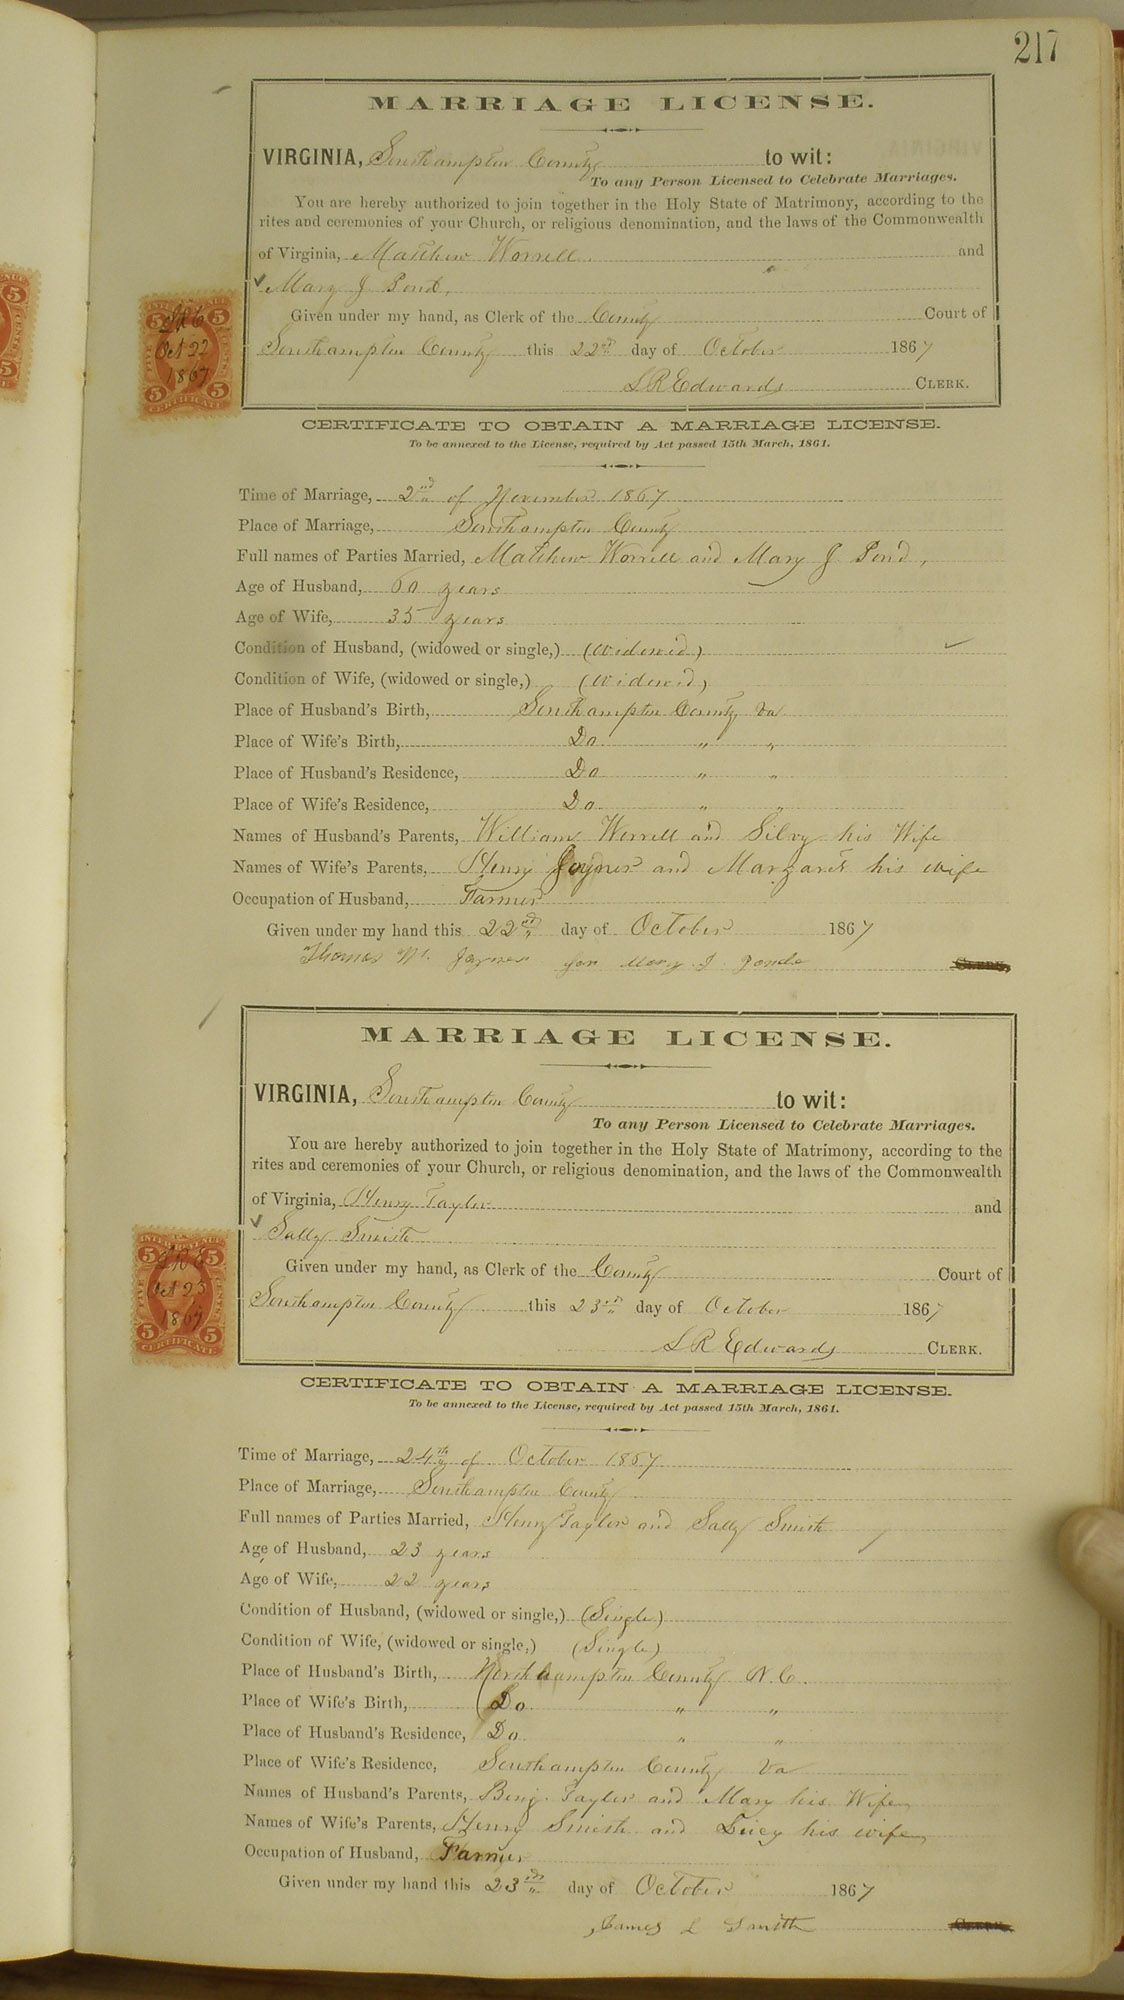 217
MARRIAGE LICENSE.
VIRGINIA, Southampton County to wit:
To any Person Licensed to Celebrate Marriages.
You are hereby authorized to join together in the Holy State of Matrimony, according to the
rites and ceremonies of your Church, or religious denomination, and the laws of the Commonwealth
of Virginia, Matthew Worrell and
Mary J Pond,
Given under my hand, as Clerk of the County Court of
Southampton County this 22nd day of October 1867
L R Edwards CLERK.
LRE
Oct 22
1867
CERTIFICATE TO OBTAIN A MARRIAGE LICENSE.
To be annexed to the License, required by Act passed 15th March, 1861.
Time of Marriage, 2nd of November 1867
Place of Marriage, Southampton County
Full names of Parties Married, Matthew Worrell and Mary J Pond,
Age of Husband, 60 years
Age of Wife, 35 years
Condition of Husband, (widowed or single,) (Widowed)
Condition of Wife, (widowed or single,) (Widowed)
Place of Husband's Birth, Southampton County Va
Place of Wife's Birth, Do " "
Place of Husband's Residence, Do " "
Place of Wife's Residence, Do " "
Names of Husband's Parents, William Worrell and Silvy his Wife
Names of Wife's Parents, Henry Joyner and Margaret his wife
Occupation of Husband, Farmer
Given under my hand this 22nd day of October 1867
Thomas Joyner for Mary J. Ponds CLERK.
MARRIAGE LICENSE.
VIRGINIA, Southampton County to wit:
To any Person Licensed to Celebrate Marriages.
You are hereby authorized to join together in the Holy State of Matrimony, according to the
rites and ceremonies of your Church, or religious denomination, and the laws of the Commonwealth
of Virginia, Henry Taylor and
Sally Smith
Given under my hand, as Clerk of the County Court of
Southampton County this 23rd day of October 1867
L R Edwards CLERK.
LRE
Oct 23
1867
CERTIFICATE TO OBTAIN A MARRIAGE LICENSE.
To be annexed to the License, required by Act passed 15th March, 1861.
Time of Marriage, 24th of October 1867
Place of Marriage, Southampton County
Full names of Parties Married, Henry Taylor and Sally Smith
Age of Husband, 23 years
Age of Wife, 22 years
Condition of Husband, (widowed or single,) (Single)
Condition of Wife, (widowed or single,) (Single)
Place of Husband's Birth, Northampton County N.C.
Place of Wife's Birth, Do " "
Place of Husband's Residence, Do " "
Place of Wife's Residence, Southampton County Va
Names of Husband's Parents, Benj. Taylor and Mary his Wife
Names of Wife's Parents, Henry Smith and Lucy his wife
Occupation of Husband, Farmer
Given under my hand this 23rd day of October 1867
James L Smith CLERK.